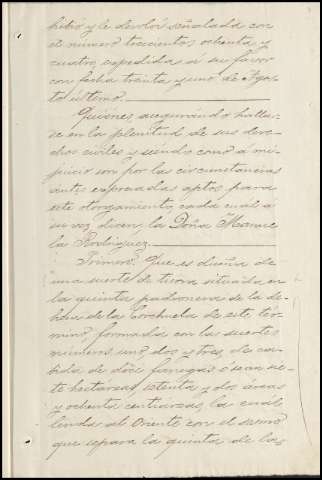 hibió y le devolví señalada con
el número trescientos ochenta y
cuatro, expedida á su favor
con fecha treinta y uno de Agos-
to último.
Quienes asegurando hallar-
se en la plenitud de sus dere-
chos civiles y siendo como á mi
juicio son por las circunstancias
antes expresadas aptos para
este otorgamiento, cada cual á
su vez dicen, la Doña Manue-
la Rodriguez
Primero. Que es dueña de
una suerte de tierra situada en
la quinta padronera de la de-
hesa de la Corchuela de este tér-
mino, formada con las suertes
números uno, dos y tres, de ca-
bida de doce fanegas ó sean sie-
te hectáreas, setenta y dos áreas
y ochenta centiáreas, la cual
linda al Oriente con el
que separa la quinta de las